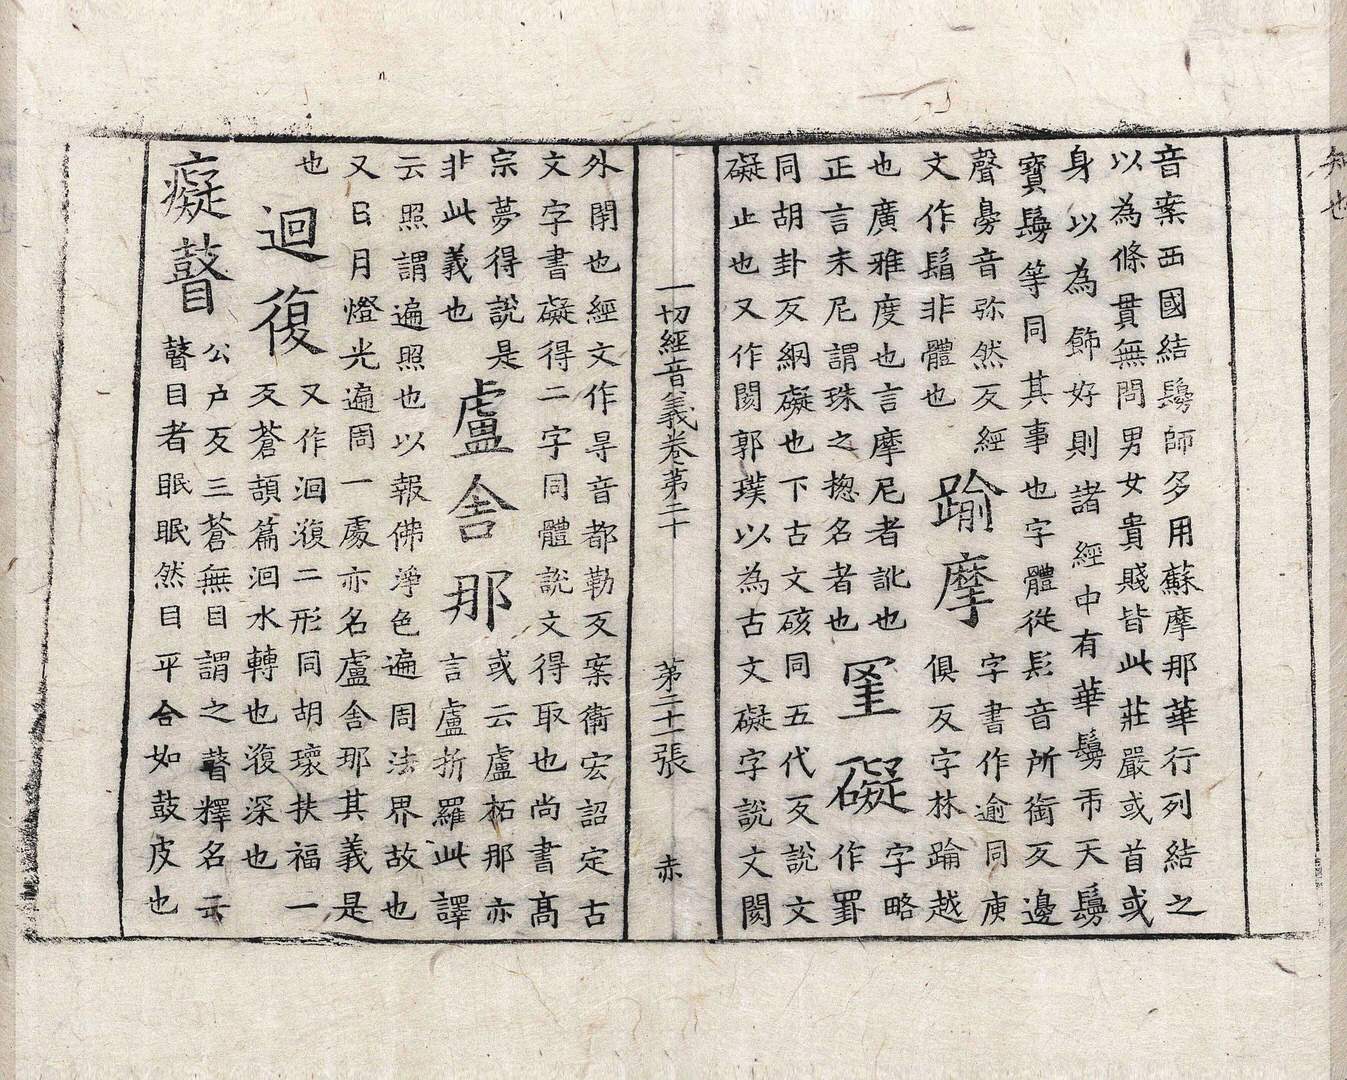 知也
音案西國結鬘師多用蘇摩那華行列結之
以為條貫無問男女貴賤皆此莊嚴或首或
身以為飾好則諸經中有華鬘市天鬘
寶鬘等同其事也字體從髟音所銜反邊
聲㝱音弥然反經
文作鬘非體也
踰摩
字書作逾同庾
俱反字林踰越
也廣雅度也言摩尼者訛也
正言末尼謂珠之揔名者也
罣礙
字略
作罫
同胡卦反網礙也下古文硋同五代反說文
礙止也又作閡郭璞以為古文礙字說文閡
一切經音義卷第二十 第二十一張 赤
外閉也經文作㝵音都勒反案衛宏詔定古
文字書礙得二字同體說文得取也尚書高
宗夢得說是
非此義也
盧舍那
或云盧柘那亦
言盧折羅此譯
云照謂遍照也以報佛淨色遍周法界故也
又日月燈光遍周一處亦名盧舍那其義是
也
迴復
又作洄澓二形同胡瓌扶福一
反蒼頡篇洄水轉也澓深也
癡瞽
公户反三蒼無目謂之瞽釋名云
瞽目者眠眠然目平合如鼓皮也